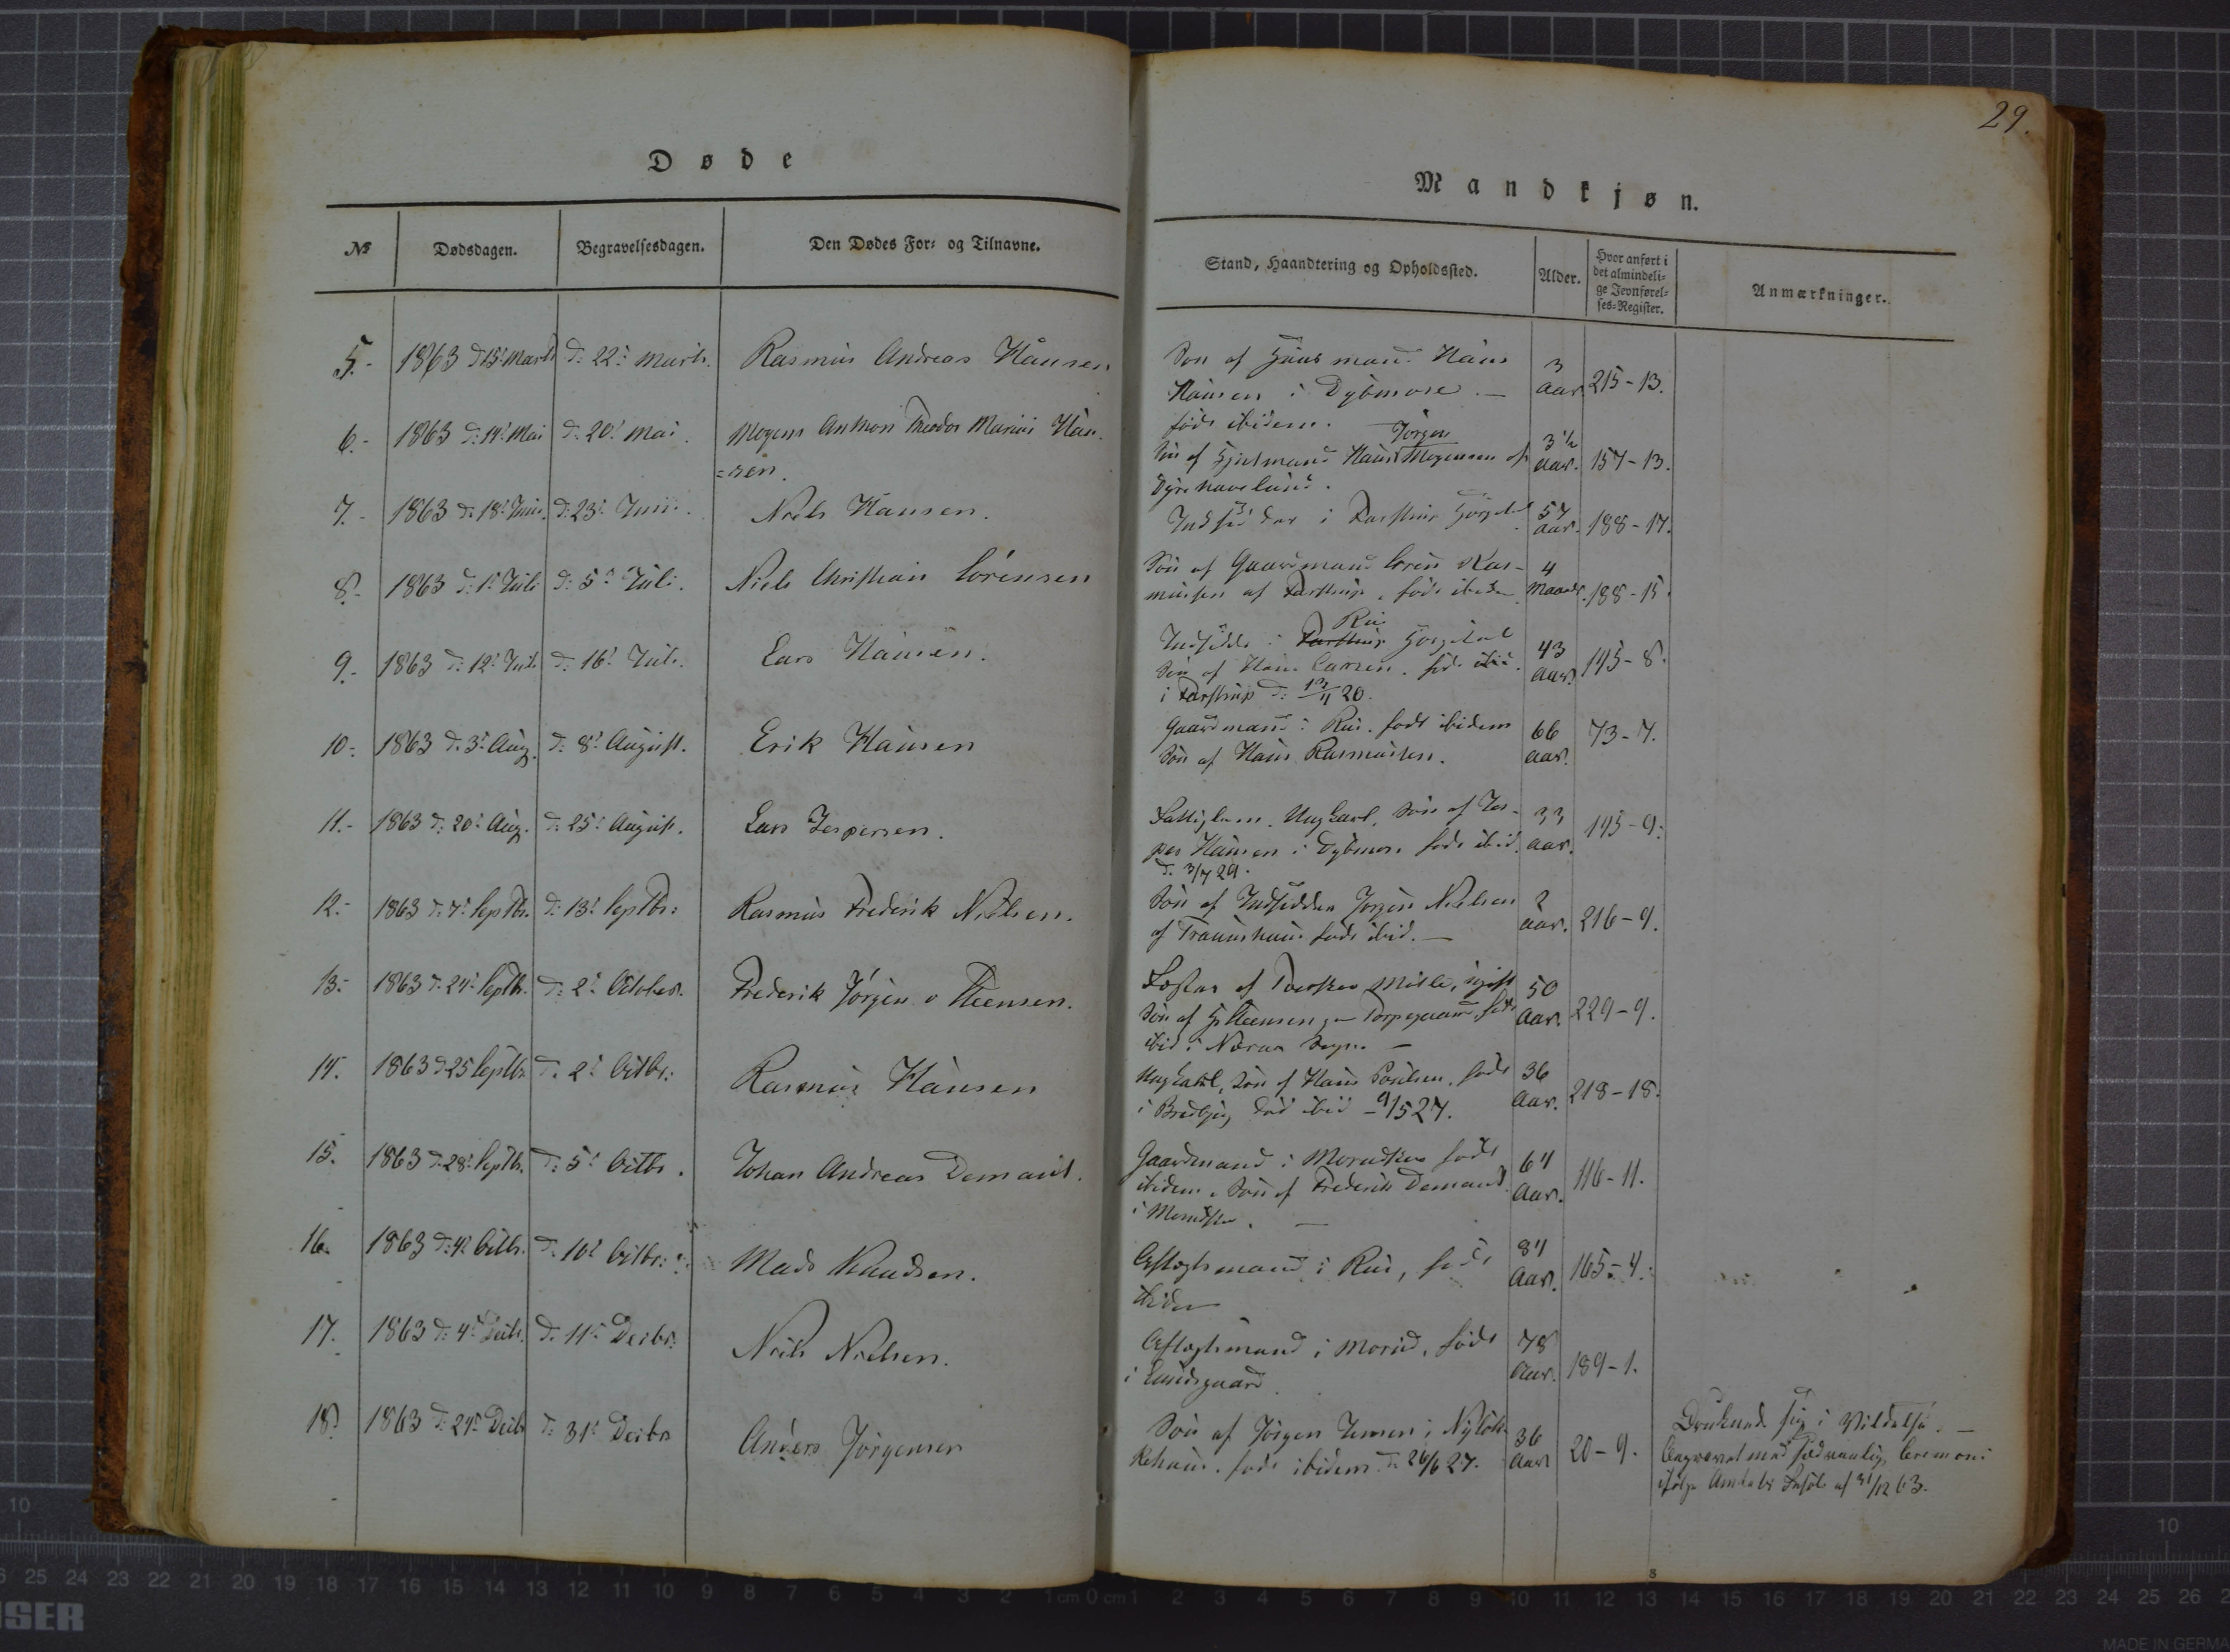 29.
Døde
Mandkjøn.
№ Dødsdagen. Begravelsesdagen. Den Dødes For- og Tilnavne. Stand, Haandtering og Opholdssted. Alder. Hvor anført i det almindelige Jevnførelses-Register. Anmærkninger.
5.- 1863 d: 15' Marts d: 22' Marts. Rasmus Andreas Hansen
Søn af Huusmand Hans 3
Hansen i Dybmose. — Aar. 215-13.
født ibidem.
6.- 1863 d: 14' Mai d: 20' Mai. Mogens Anthon Theodor Marius Han-
=sen.
Jørgen
Søn af Hjulmand Hans Mogensen af 3½ Aar. 157-13.
Dyrehavelund.
7.- 1863 d: 18' Juni. d: 23' Juni. Niels Hansen.
Indsidder i Farstrup Hospital 57 Aar. 188-17.
8.- 1863 d: 1' Juli d: 5' Juli. Niels Christian Sörensen
Søn af Gaardmand Sören Ras- 4
mussen af Farstrup, født ibidem Maaned. 188-15.
9.- 1863 d: 12' Juli. d: 16' Juli. Lars Hansen.
Rue
Indsidder i Farstrup Hospital 43
Søn af Hans Larsen. født Aar. 145-8.
i Farstrup d: 13/11 20.
10.- 1863 d: 3' Aug. d: 8' August. Erik Hansen
Gaardmand i Rue. født ibidem 66 73-7.
Søn af Hans Rasmussen. Aar.
11.- 1863 d: 20' Aug. d: 25' August. Lars Jespersen.
Fattiglem. Ungkarl, Søn af Jes- 33 145-9.
per Hansen i Dybmose født ibid. Aar.
d. 3/7 29.
12.- 1863 d: 7' Septbr. d: 13' Septbr: Rasmus Frederik Nielsen.
Søn af Indsidder Jørgen Nielsen 2
af født ibid. — Aar. 216-9.
13.- 1863 d: 24' Septbr. d: 2' October. Frederik Jörgen v Steensen.
af Mølle, ugift 50
Søn af Steensen født Aar. 229-9.
ibid i Nøraa Sogn. —
14. 1863 d 25 Septbr d. 2' Octbr: Rasmus Hansen
Ungkarl, Søn af Hans Poulsen, født 36
i Bredbjerg ibid - 9/5 27. Aar. 218-18.
15. 1863 d: 28' Septbr. d: 5' Octbr. Johan Andreas Demant.
Gaardmand i Morudskov født 64
ibidem. Søn af Frederik Demant Aar. 116-11.
i Morudskov. —
16. 1863 d: 4' Octbr. d: 10' Octbr: Mads Knudsen.
Aftægtsmand i Rue, født 84 Aar. 165-4.
ibidem
17. 1863 d: 4' Decbr. d. 11' Decbr: Niels Nielsen.
Aftægtsmand i Morud, født 78
i Lundsgaard Aar. 189-1.
18. 1863 d: 24' Decbr d: 31' Decbr Anders Jørgensen
Søn af Jörgen Jensen i 36
født ibidem d: 26/6 27. Aar 20-9.
Druknede sig i —
Begravet med sædvanlig Ceremoni
ifølge Amtets af 31/12 63.